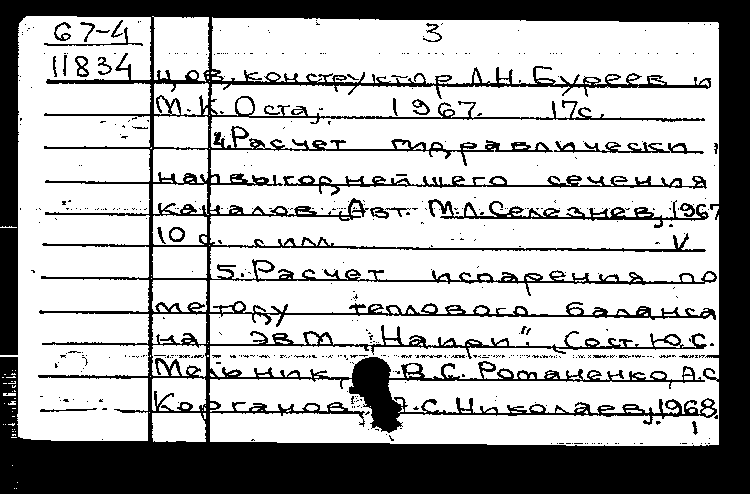 67-4 3
11834 цов, конструктор Л.Н. Буреев и
М.К. Оста; 1967. 17с.
4. Расчет гидравлически
наивыгоднейшего сечения
каналов [Авт. М.Л. Селезнев, 1967
10 с. с илл. V
5. Расчет испарения по
методу теплового баланса
на ЭВМ „Наири". [Сост. Ю.С.
Мельник, В.С. Романенко, А.С.
Корганов, А.С. Николаев], 1968.